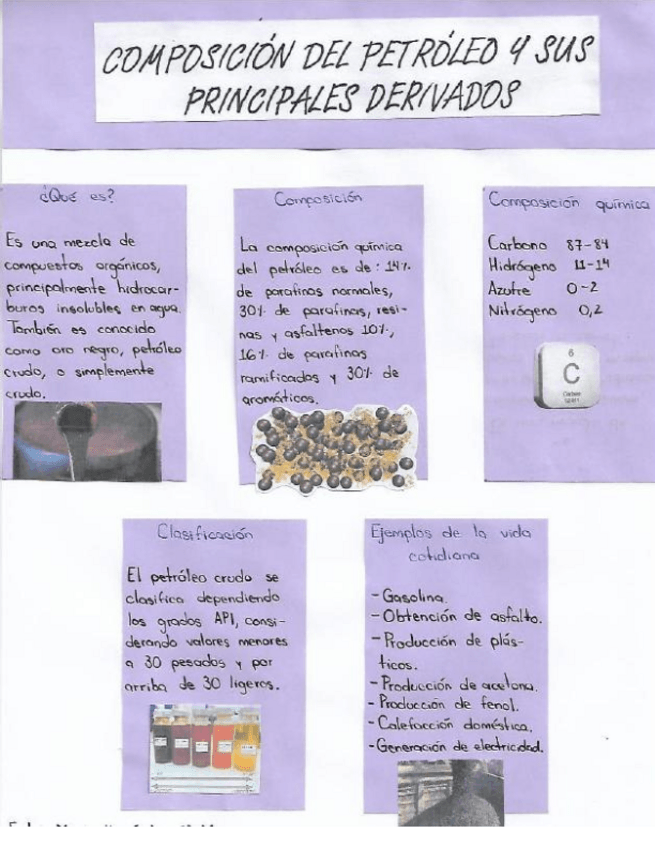 COMPOSICIÓN DEL PETRÓLEO Y SUS
PRINCIPALES DERIVADOS
¿Qué es?
Es una mezcla de
compuestos orgánicos,
principalmente hidrocar-
buros insolubles en agua.
También es conocido
como oro negro, petróleo
crudo, o simplemente
crudo.
Composición
La composición química
del petróleo es de: 14%
de parafinas normales,
30% de parafinas, resi-
nas y asfaltenos 10%,
16% de parafinas
ramificadas y 30% de
aromáticos.
Composición química
Carbono 87-84
Hidrógeno 11-14
Azufre 0-2
Nitrógeno 0,2
6
C
Clasificación
El petróleo crudo se
clasifica dependiendo
los grados API, consi-
derando valores menores
a 30 pesados y por
arriba de 30 ligeros.
Ejemplos de la vida
cotidiana
-Gasolina.
-Obtención de asfalto.
-Producción de plás-
ticos.
-Producción de acetona.
-Producción de fenol.
-Calefacción doméstica.
-Generación de electricidad.